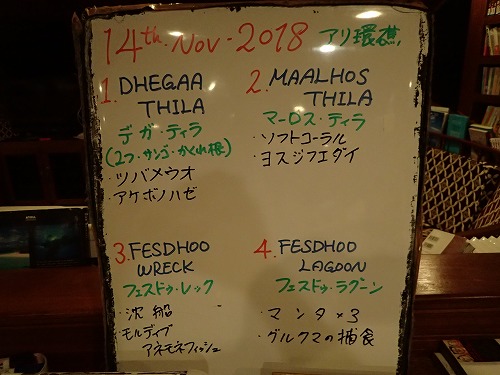 14th. Nov - 2018 アリ環礁
1. DHEGAA
THILA
デガ・ティラ
(2つ・サンゴ・かくれ根)
・ツバメウオ
・アケボノハゼ
2. MAALHOS
THILA
マーロス・ティラ
・ソフトコーラル
・ヨスジフエダイ
3. FESDHOO
WRECK
フェスドゥ・レック
・沈船
・モルディブ
アネモネフィッシュ
4. FESDHOO
LAGOON
フェスドゥ・ラグーン
・マンタ×3
・グルクマの捕食